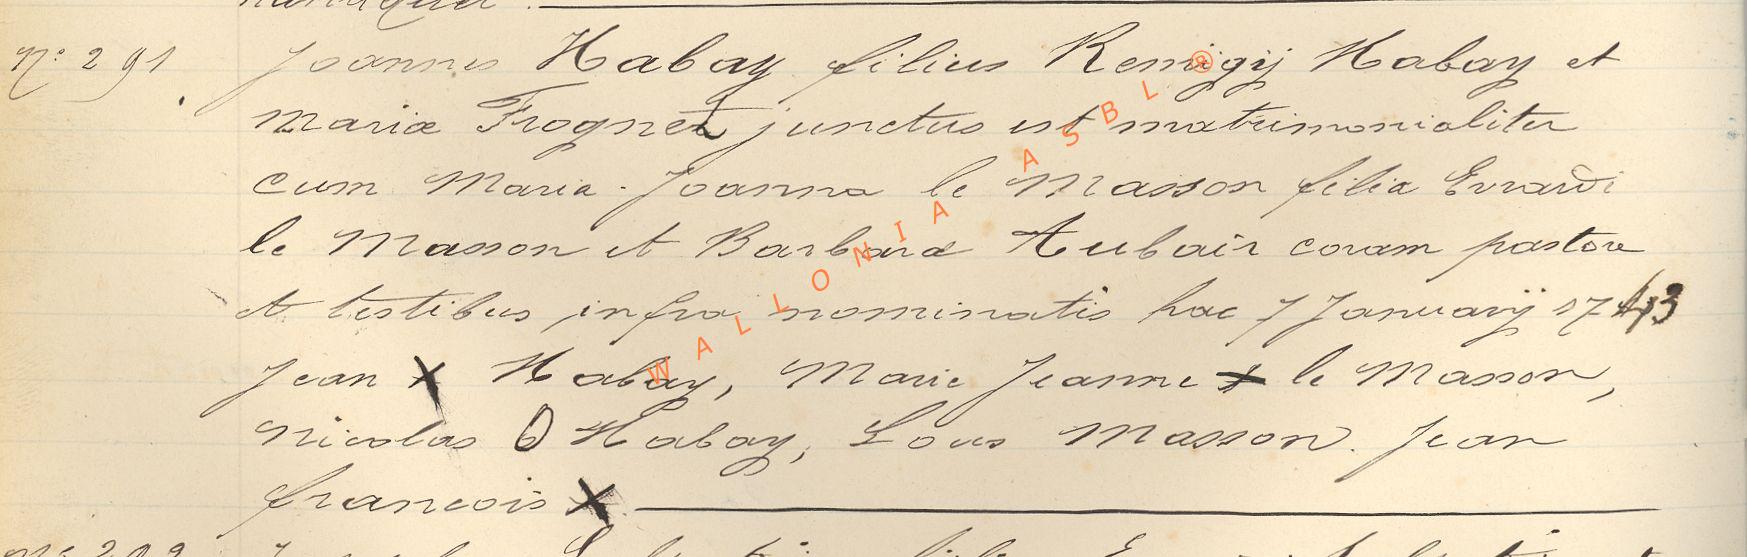 Nº 291 Joannes Habay filius Remigij Habay et
mariæ Frognet junctus est matrimonialiter
cum Maria-Joanna le Masson filia Evrardi
le Masson et Barbaræ Aubair coram pastore
et testibus infra nominatis hac 7 Januarÿ 1743
Jean X Habay, Marie Jeanne x le Masson,
Nicolas O Habay, Lous Masson. Jean
francois X
WALLONIA ASBL ®